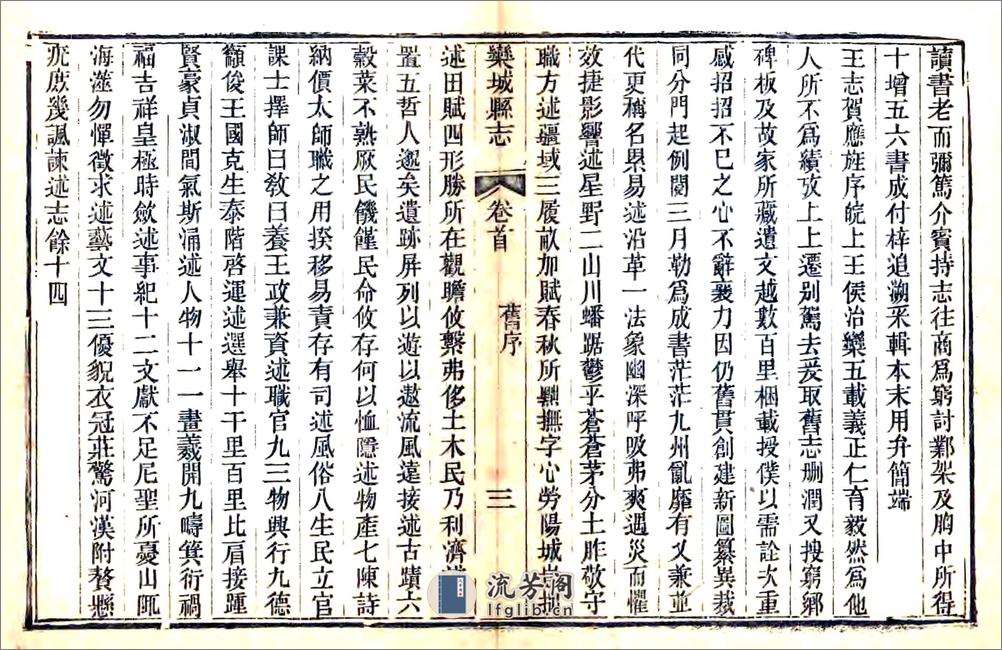 讀書老而彌篤介賓持志往商為窮討鄴架及胸中所得
十增五六書成付梓追溯采輯本末用弁簡端
王志賀應旌序皖上王侯治欒五載義正仁育毅然為他
人所不為績攷上上遷別駕去爰取舊志刪潤又搜窮鄉
碑板及故家所藏遺文越數百里梱載授僕以需詮次重
感招招不已之心不辭襄力因仍舊貫創建新圖纂異裁
同分門起例閱三月勒為成書茫茫九州亂靡有乂兼並
代更稱名奥易述沿革一法象幽深呼吸弗爽遇災而懼
效捷影響述星野二山川蟠踞鬱乎蒼蒼茅分土胙敬守
職方述疆域三履畝加賦春秋所
撫字心勞陽城
欒城縣志
卷首
舊序
三
述田賦四形勝所在觀瞻攸繫弗侈土木民乃利濟
置五哲人邈矣遺跡屏列以遊以遨流風遠接述古蹟六
穀菜不熟厥民饑饉民命攸存何以恤隱述物產七陳詩
納價太師職之用揆移易責存有司述風俗八生民立官
課士擇師曰教曰養王政兼資述職官九三物興行九德
籲俊王國克生泰階啓運述選舉十千里百里比肩接踵
賢豪貞淑間氣斯涌述人物十一一畫羲開九疇箕衍禍
福吉祥皇極時斂述事紀十二文獻不足尼聖所憂山陬
海澨勿憚徵求述藝文十三優貌衣冠莊驚河漢附贅懸
疣庶幾諷諫述志餘十四
流芳閣
lfglib.cn